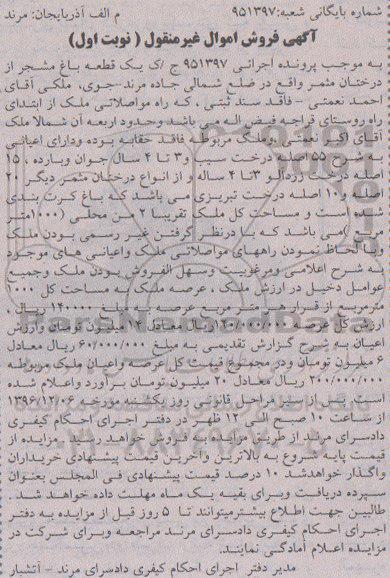 شماره بایگانی شعبه: ۹۵۱۳۹۷ م الف آذربایجان: مرند
آگهی فروش اموال غیر منقول ( نوبت اول)
به موجب پرونده اجرائی ۹۵۱۳۹۷ ج /ک یک قطعه باغ مشجر از
درختان مثمر واقع در ضلع شمالی جاده مرند-جوی، ملکی آقای
احمد نعمتی - فاقد سند ثبتی ، که راه مواصلاتی ملک از ابتدای
راه روستای قراجه فیض اله می باشد وحدود اربعه آن شمالا ملک
آقای اکبر نعمتی ،وملک مربوطه فاقد حقابه بوده ودارای اعیانی
به شرح ۵۵ اصله درخت سیب و۳ تا ۴ سال جوان وبارده ، ۱۵
اصله درخت زردآلو ۳تا ۴ ساله و از انواع درختان مثمر دیگر ۲۰
اصله و۱۰ اصله درخت تبریزی می باشد که باغ کرت بندی
شده است و مساحت کل ملک تقریبا ۲ من محلی (۱۰۰۰متر
مربع )می باشد که با درنظر گرفتن غیر رسمی بودن ملک
وبا لحاظ نمودن راههای مواصلاتی ملک واعیانی های موجود
به شرح اعلامی ومرغوبیت وسهل الفروش بودن ملک وجمیع
عوامل دخیل در ارزش ملک ، عرصه ملک به مساحت کل ۱۰۰۰
مترمربع از قرار هر متر مربع عرصه به مبلغ ۱۴۰۰۰۰ ریال،
ارزش کل عرصه ۱۴۰/۰۰۰/۰۰۰ ریال معادل ۱۴ میلیون تومان وارزش
اعیان به شرح گزارش تقدیمی به مبلغ ۶۰/۰۰۰/۰۰۰ ریال معادل
۶ میلیون تومان ودر مجموع قیمت کل عرصه واعیان ملک مربوطه
۲۰۰/۰۰۰/۰۰۰ ریال معادل ۲۰ میلیون تومان برآورد واعلام شده
است پس از سیر مراحل قانونی روز یکشنبه مورخه ۱۳۹۶/۱۲/۰۶
از ساعت ۱۰ صبح الی ۱۲ ظهر در دفتر اجرای احکام کیفری
دادسرای مرند از طریق مزایده به فروش خواهد رسید. مزایده از
قیمت پایه شروع به بالاترین وآخرین قیمت پیشنهادی خریداران
واگذار خواهدشد ۱۰ درصد قیمت پیشنهادی فی المجلس بعنوان
سپرده دریافت وبرای بقیه یک ماه مهلت داده خواهد شد .
طالبین جهت اطلاع بیشترمیتوانند تا ۵ روز قبل از مزایده به دفتر
اجرای احکام کیفری دادسرای مرند مراجعه وبرای شرکت در
مزایده اعلام آمادگی نمایند.
مدیر دفتر اجرای احکام کیفری دادسرای مرند - آتشبار